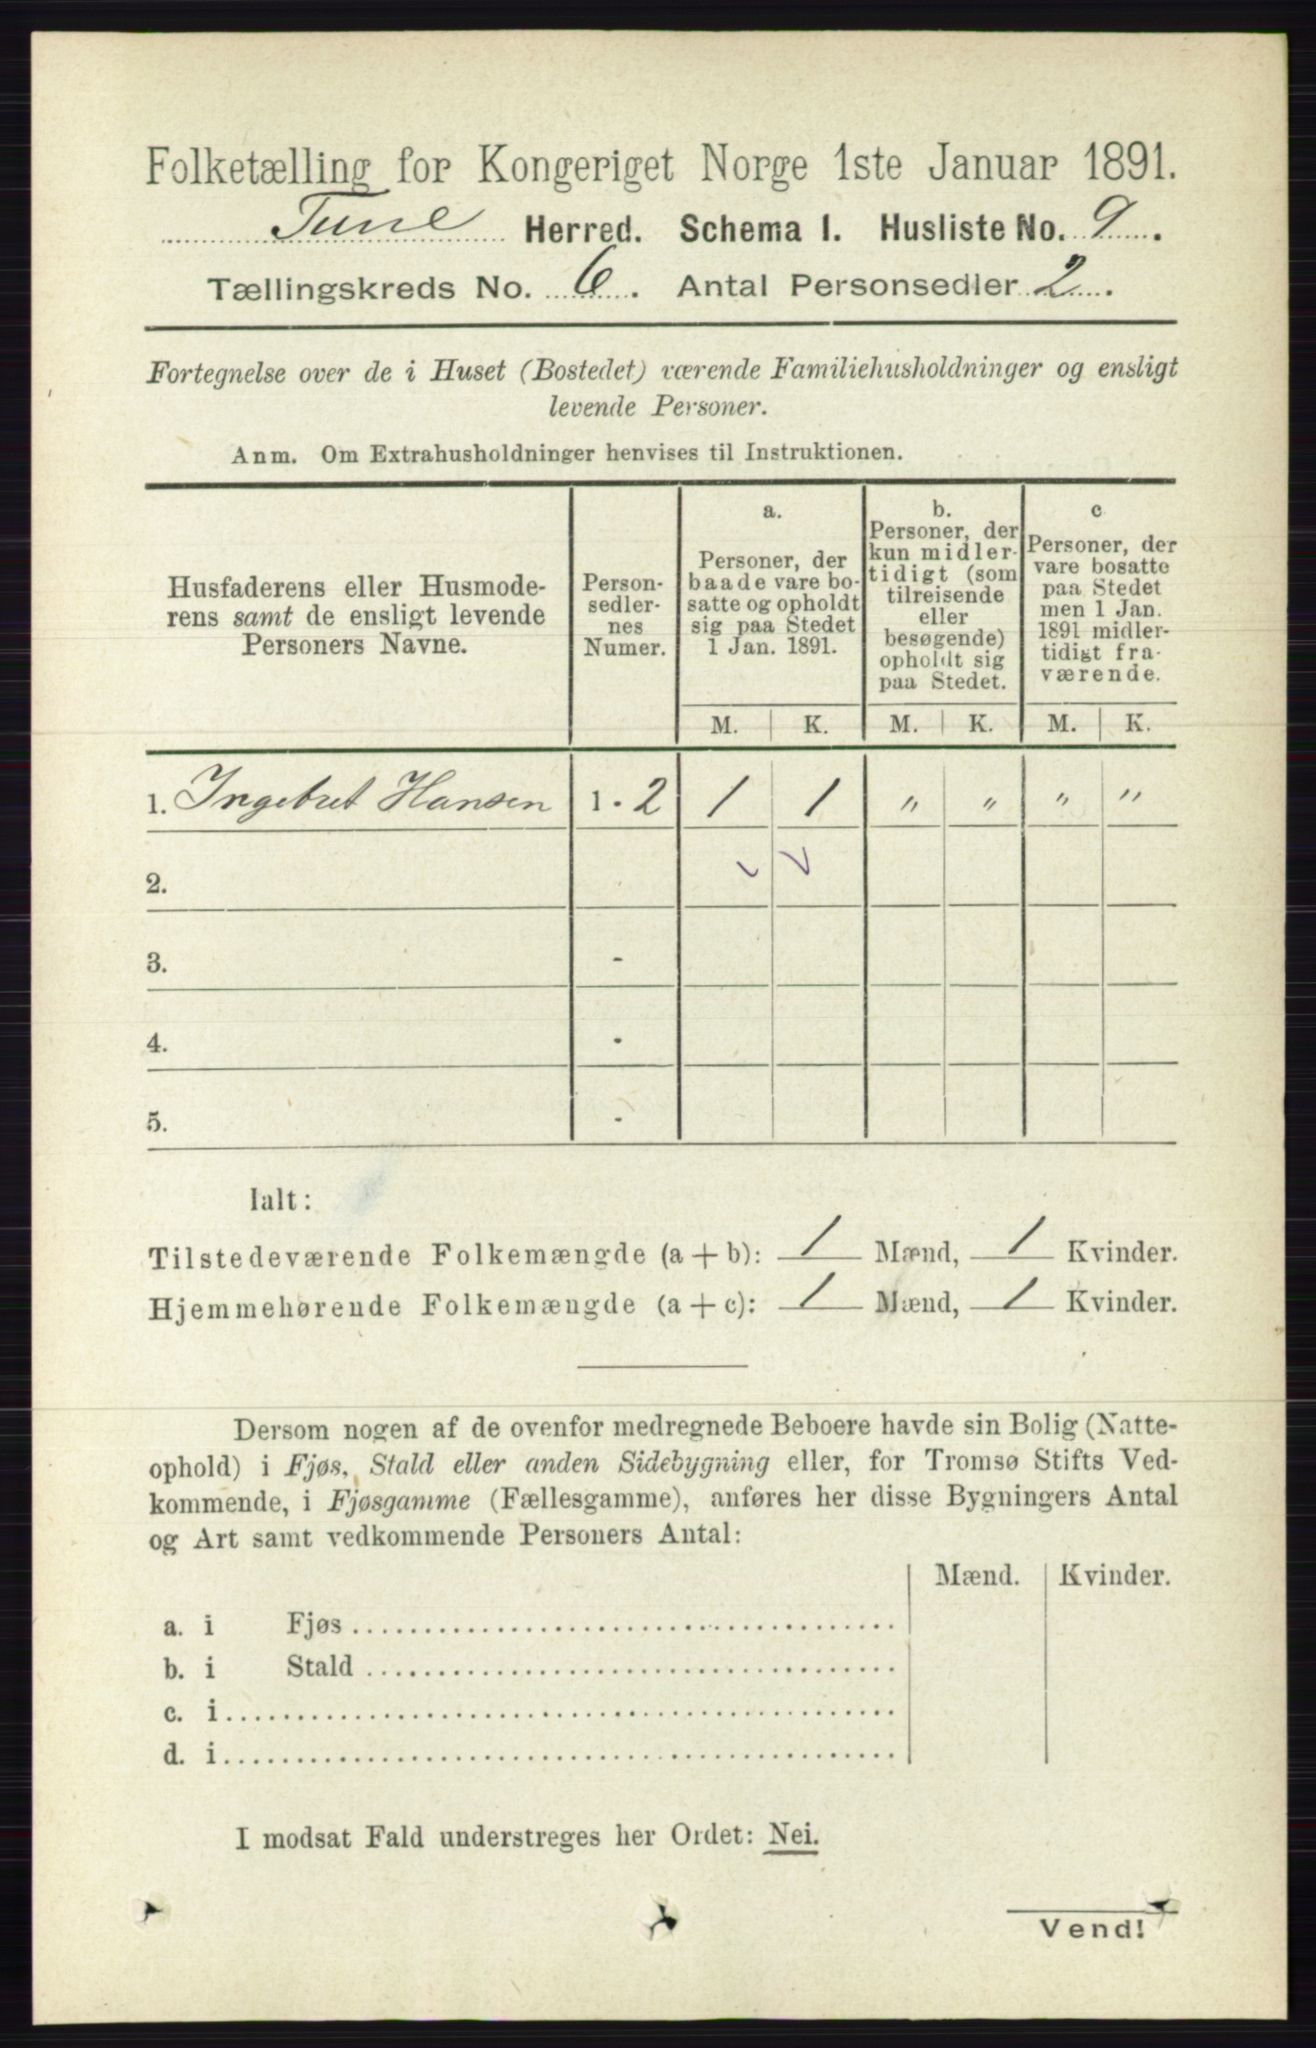 Folketælling for Kongeriget Norge 1ste Januar 1891.
Tune Herred. Schema I. Husliste No. 9.
Tællingskreds No. 6. Antal Personsedler 2.
Fortegnelse over de i Huset (Bostedet) værende Familiehusholdninger og ensligt
levende Personer.
Anm. Om Extrahusholdninger henvises til Instruktionen.
Husfaderens eller Husmode-
rens samt de ensligt levende
Personers Navne.
Person-
sedler-
nes
Numer.
a.
Personer, der
baade vare bo-
satte og opholdt
sig paa Stedet
1 Jan. 1891.
b.
Personer, der
kun midler-
tidigt (som
tilreisende
eller
besøgende)
opholdt sig
paa Stedet.
c
Personer, der
vare bosatte
paa Stedet
men 1 Jan.
1891 midler-
tidigt fra-
værende.
M. K. M. K. M. K.
1. Ingebret Hansen 1 - 2 1 1 " " " "
2.
3. -
4. -
5. -
Ialt:
Tilstedeværende Folkemængde (a + b): 1 Mænd, 1 Kvinder.
Hjemmehørende Folkemængde (a + c): 1 Mænd, 1 Kvinder.
Dersom nogen af de ovenfor medregnede Beboere havde sin Bolig (Natte-
ophold) i Fjøs, Stald eller anden Sidebygning eller, for Tromsø Stifts Ved-
kommende, i Fjøsgamme (Fællesgamme), anføres her disse Bygningers Antal
og Art samt vedkommende Personers Antal:
Mænd. Kvinder.
a. i Fjøs
b. i Stald
c. i
d. i
I modsat Fald understreges her Ordet: Nei.
Vend!